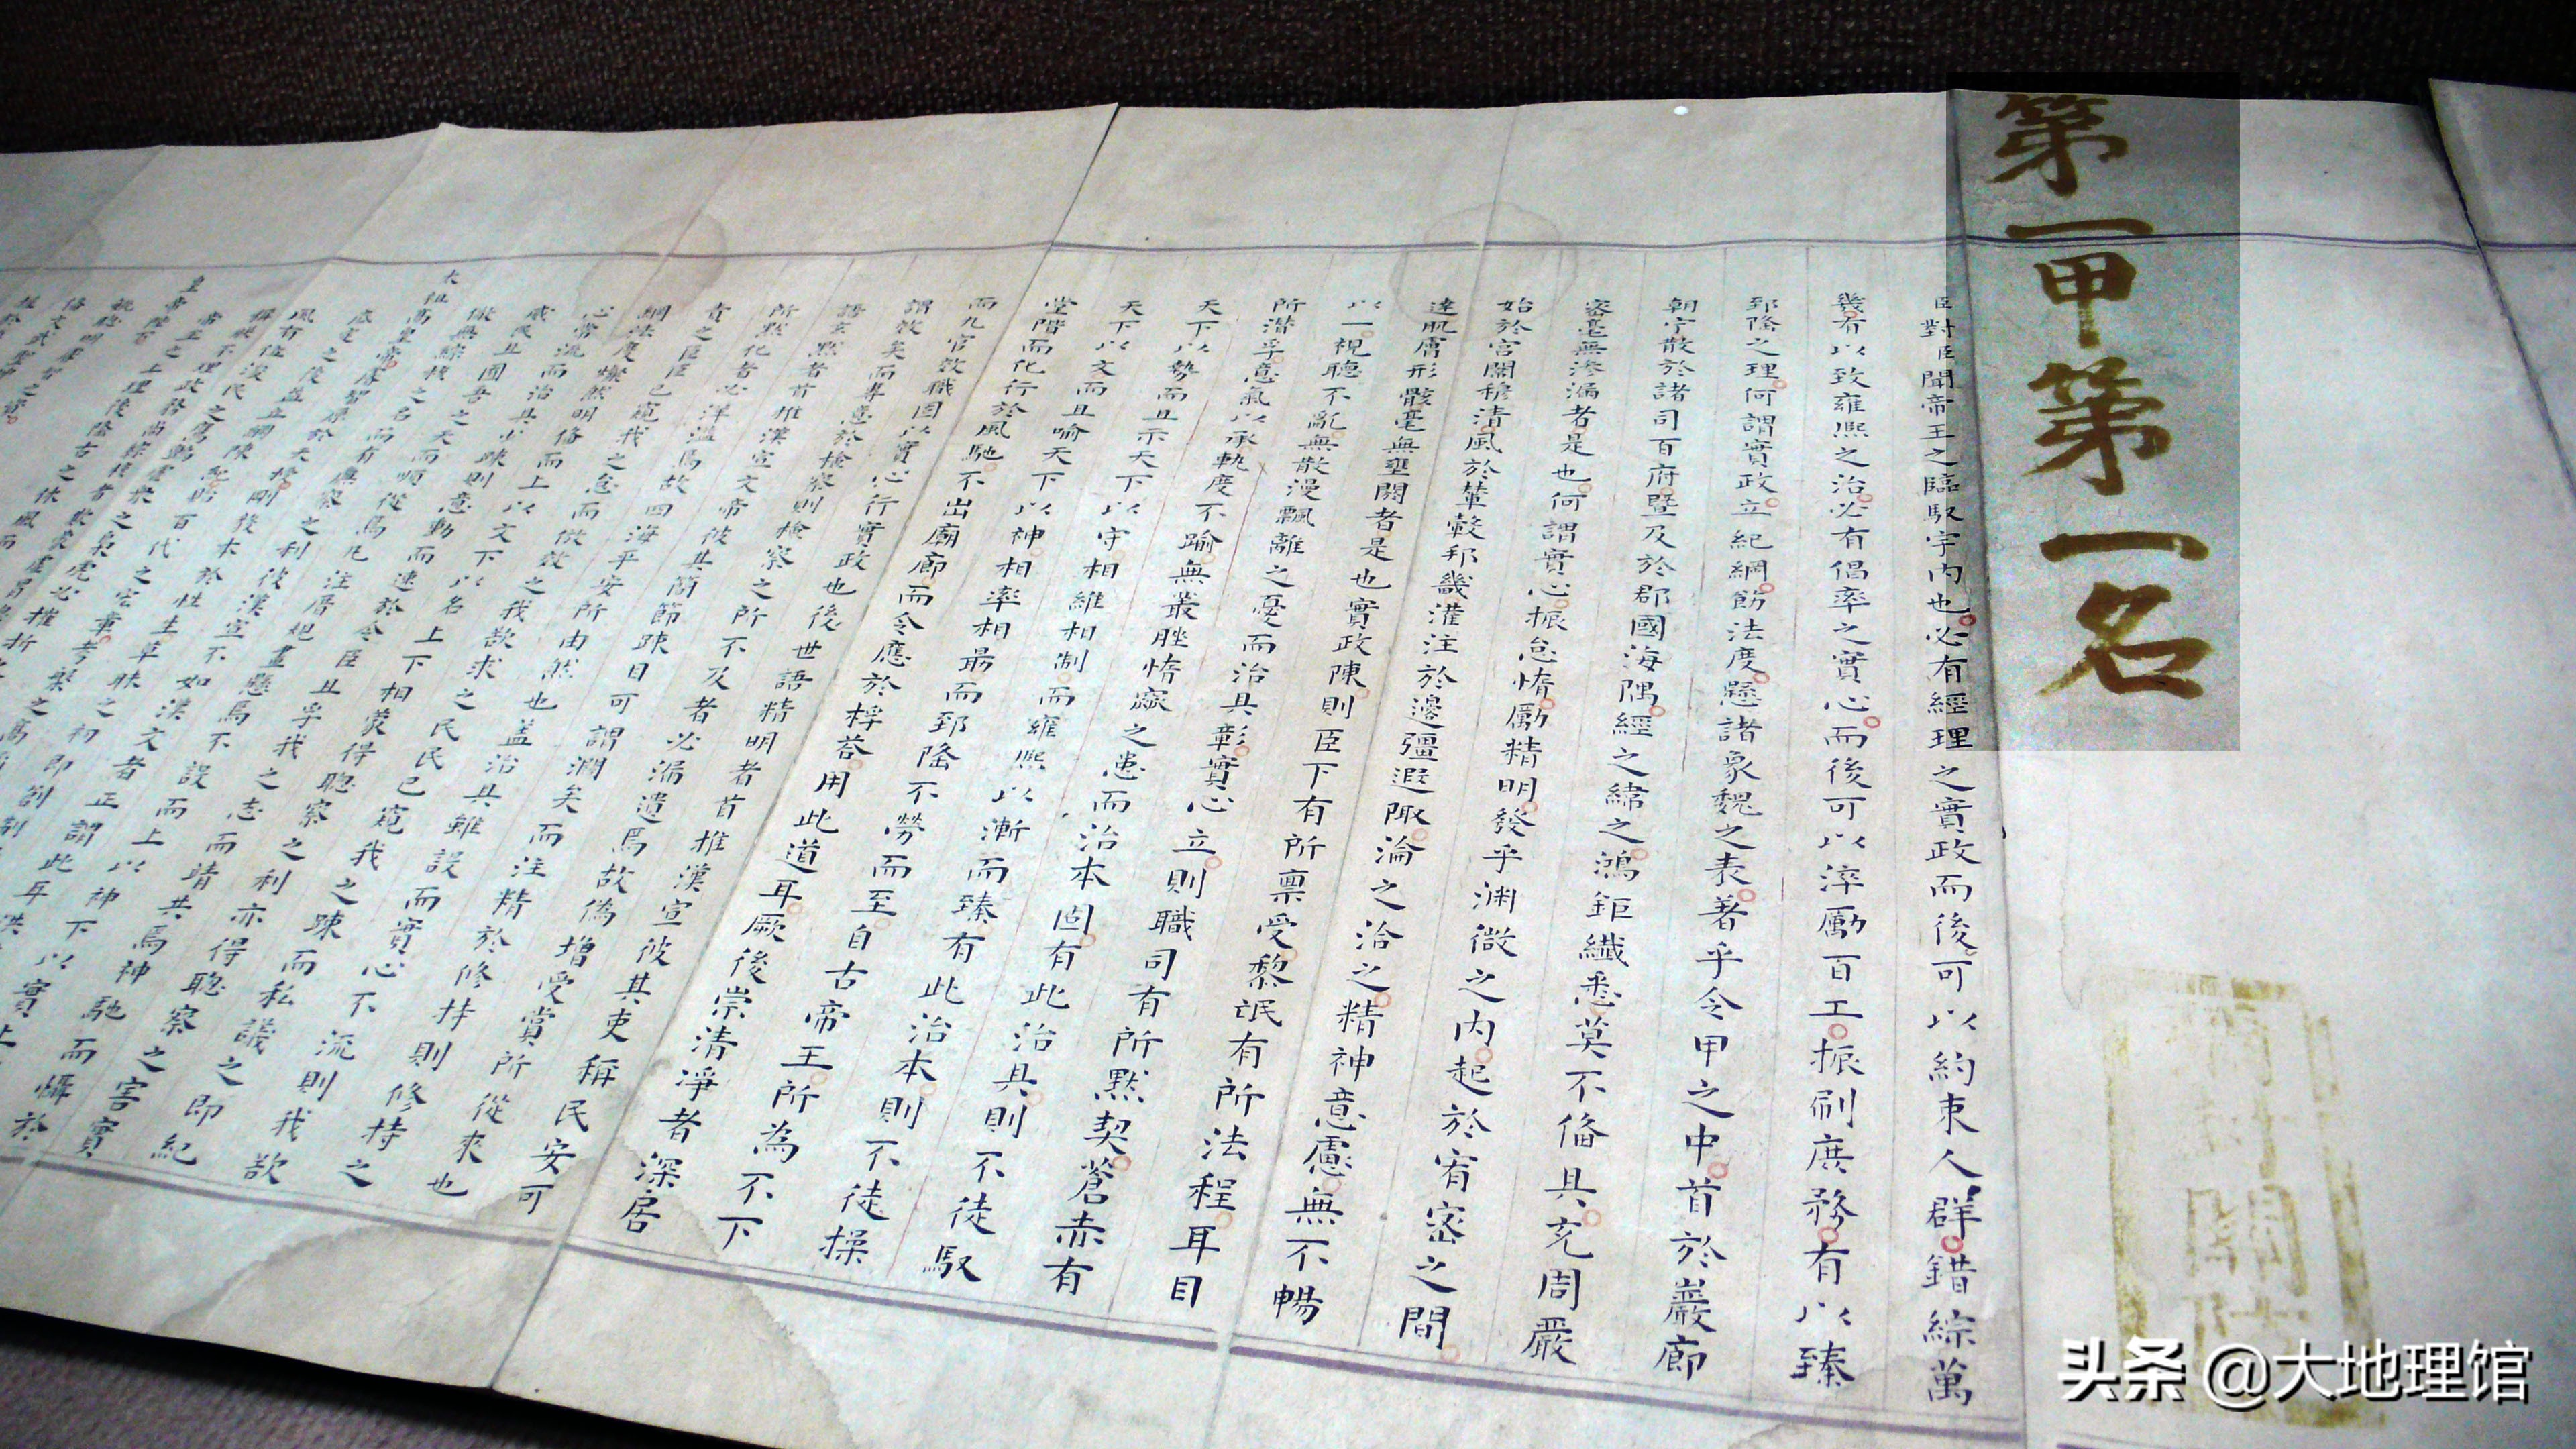 第一甲第一名
臣對臣聞帝王之臨馭宇內也必有經理之實政而後可以約束人群錯綜萬
幾有以致雍熙之治必有倡率之實心而後可以淬勵百工振刷庶務有以臻
郅隆之理何謂實政立紀綱飭法度懸諸象魏之表著乎令甲之中首於巖廊
朝宁散於諸司百府暨及於郡國海隅經之緯之鴻鉅纖悉莫不俻具充周嚴
密毫無滲漏者是也何謂實心振怠惰勵精明發乎渊微之內起於宥密之間
始於宮闈穆清風於輦轂邦畿灌注於邊疆遐陬淪之洽之精神意慮無不暢
達肌膚形骸毫無壅閼者是也實政陳則臣下有所稟受黎氓有所法程耳目
以一視聽不亂無散漫飄離之憂而治具彰實心立則職司有所默契蒼赤有
所潛孚意氣以承軌度不踰無叢脞惰窳之患而治本固有此治具則不徒馭
天下以勢而且示天下以守相維相制而雍熙以漸而臻有此治本則不徒操
天下以文而且喻天下以神相率相勗而郅隆不勞而至自古帝王所為不下
堂階而化行於風馳不出廟廊而令應於桴答用此道耳厥後崇清凈者深居
而九官效職固以實心行實政也後世語精明者首推漢宣彼其吏稱民安可
謂效矣而專意於檢察則檢察之所不及者必漏遺焉故偽增受賞所從來也
語玄默者首推漢文帝彼其簡節疎目可謂闊矣而注精於修持則修持之
所默化者必洋溢焉故四海平安所由然也蓋治具雖設而實心不流則我欲
責之臣臣已窺我之怠而倣效之我欲求之民民已窺我之疎而私議之即紀
綱法度燦然明俻而上以文下以名上下相蒙得聰察之利亦得聰察之害實
心常流而治具少疎則意動而速於令臣且孚我之志而靖共焉神馳而懾於
威民且囿吾之天而順從焉凡注厝規畫懸焉不設而上以神下以實上
無綜核之名而有廉察之利彼漢宣不如漢文者正謂此耳洪
太祖高皇帝睿智原於天授剛毅本於性生草昧之初即創制
头条 @大地理馆